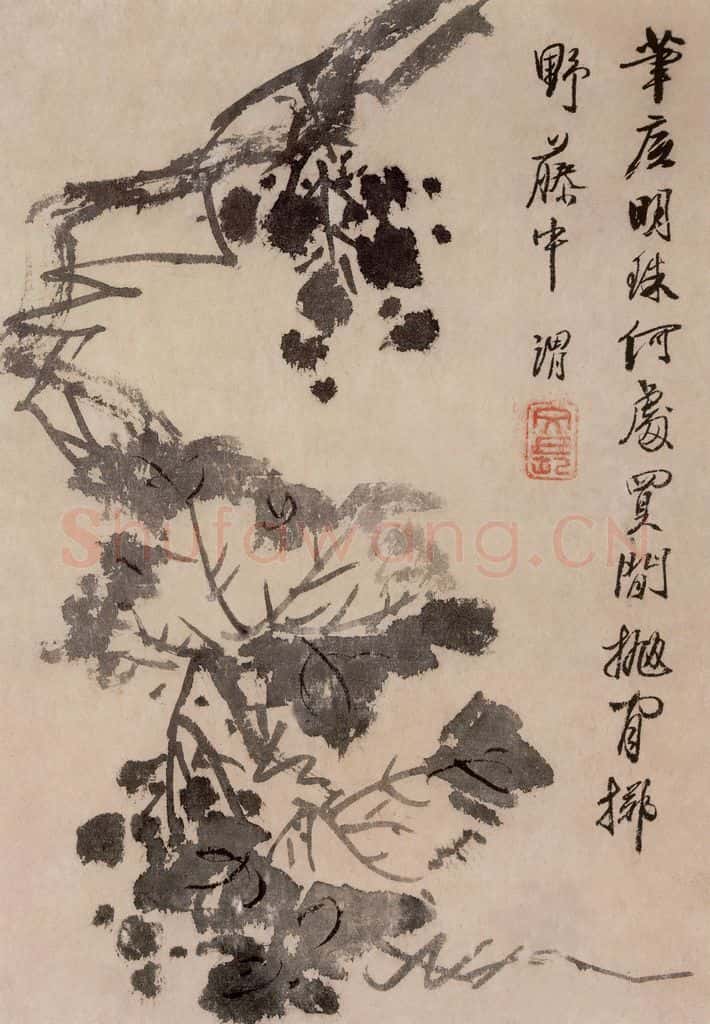 筆底明珠何處買閒拋閒擲
野藤中 渭
文長
Shufawang.CN